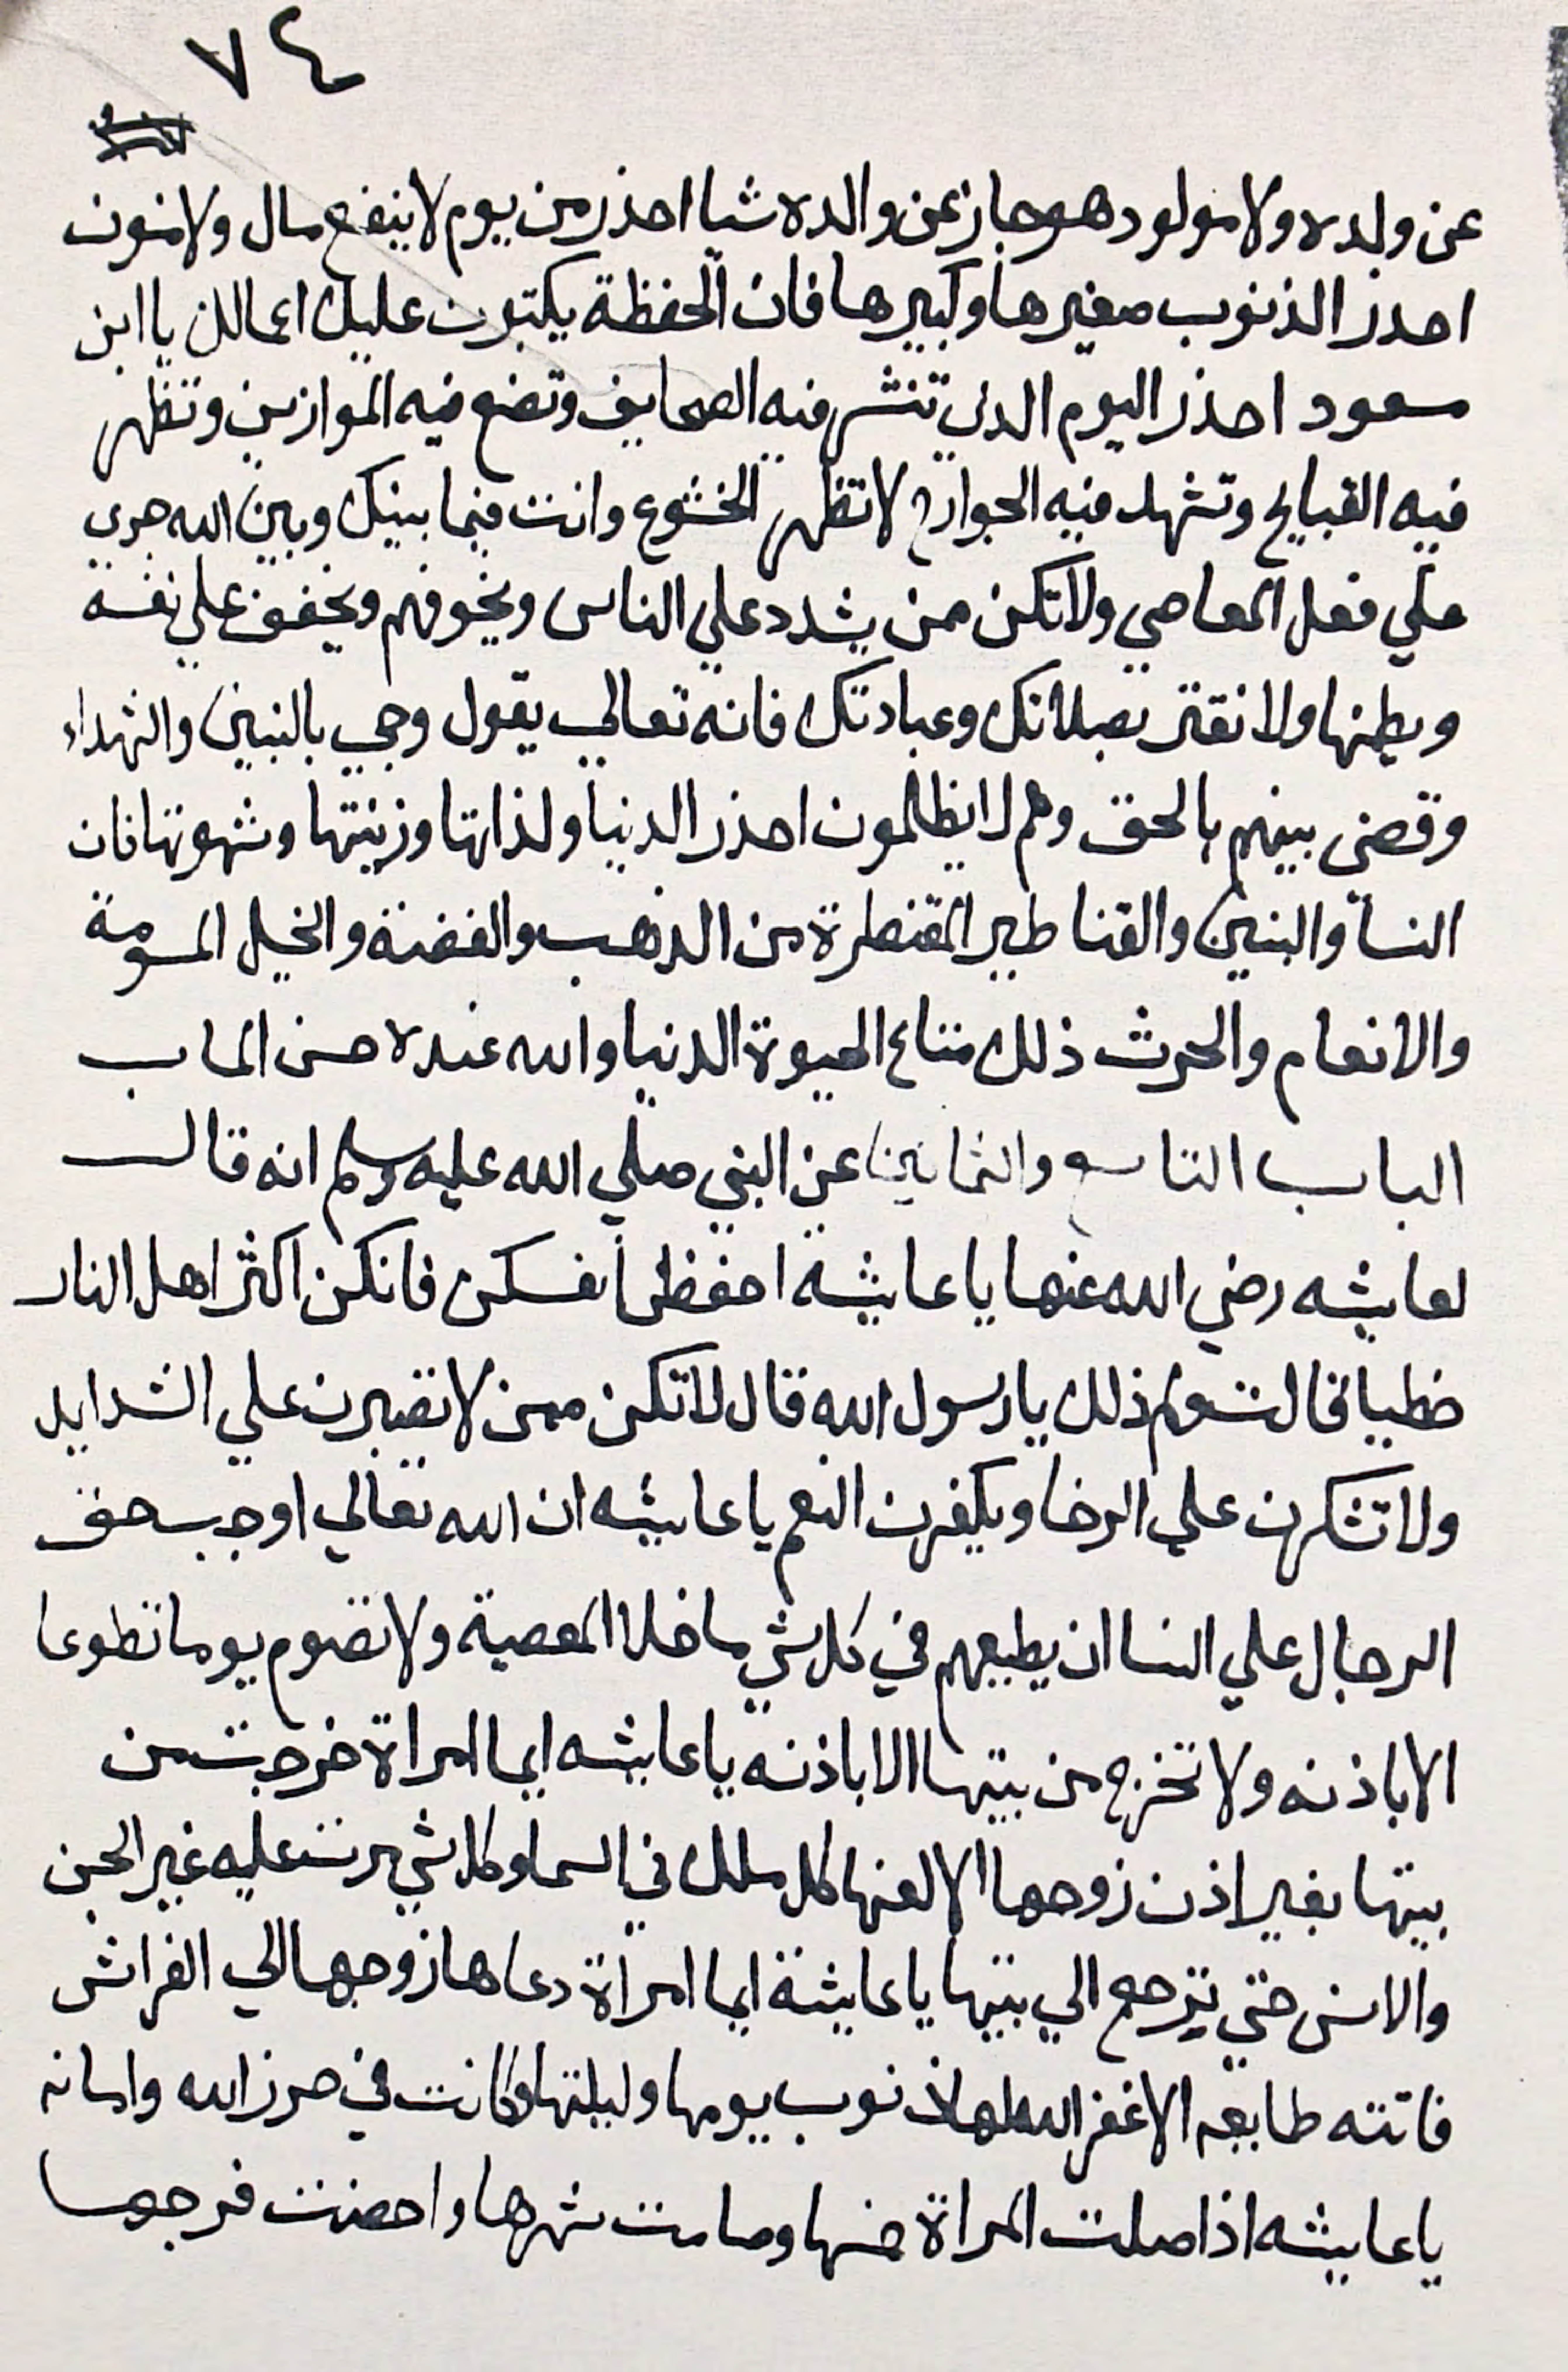 ٧٤
عن ولده ولا مولود هو جاز عن والده شيا احذر من يوم لا ينفع مال ولا بنون
احدر الذنوب صغيرها وكبيرها فان الحفظة يكتبون عليك اعمالك يا ابن
مسعود احذر اليوم الدى تنشر فيه الصحايف وتضع فيه الموازين وتظهر
فيه القبايح وتشهد فيه الجوارح لا تظهر الخشوع وانت فيما بينك وبين الله جري
علي فعل المعاصي ولا تكن ممن يشدد علي الناس ويخوفهم ويخفف علي نفسه
ويطمنها ولا تغتر بصلاتك وعبادتك فانه تعالي يقول وجي بالنبين والشهداء
وقضى بينهم بالحق وهم لا يظلمون احذر الدنيا ولذاتها وزينتها وشهوتها فان
النسآ والبنين والقناطير المقنطرة من الذهب والفضة والخيل المسومة
والانعام والحرث ذلك متاع الحيوة الدنيا والله عنده حسن الماب
الباب التاسع والثمانين عن النبي صلي الله عليه وسلم انه قال
لعايشه رضي الله عنها يا عايشه احفظى انفسكن فانكن اكثر اهل النار
خطبا قالت ولم ذلك يا رسول الله قال لاتكن ممن لا تصبرن علي الشدايد
ولا تشكرن علي الرخا ويكفرن النعم يا عايشه ان الله تعالي اوجب حق
الرجال علي النسا ان يطيعهم في كل شي ما خلا المعصية ولا تصوم يوما تطوعا
الا باذنه ولا تخرج من بيتها الا باذنه يا عايشه ايما امراة خرجت من
بيتها بغير اذن زوجها الا لعنها كل ملك في السما وكل شي مرت عليه غير الجن
والانس حتي ترجع الي بيتها يا عايشة ايما امراة دعاها زوجها الي الفراش
فاتته طايعه الا غفر الله لها ذنوب يومها وليلتها وكانت في حرز الله وامانه
يا عايشه اذا صلت المراة خمسها وصامت شهرها واحصنت فرجها